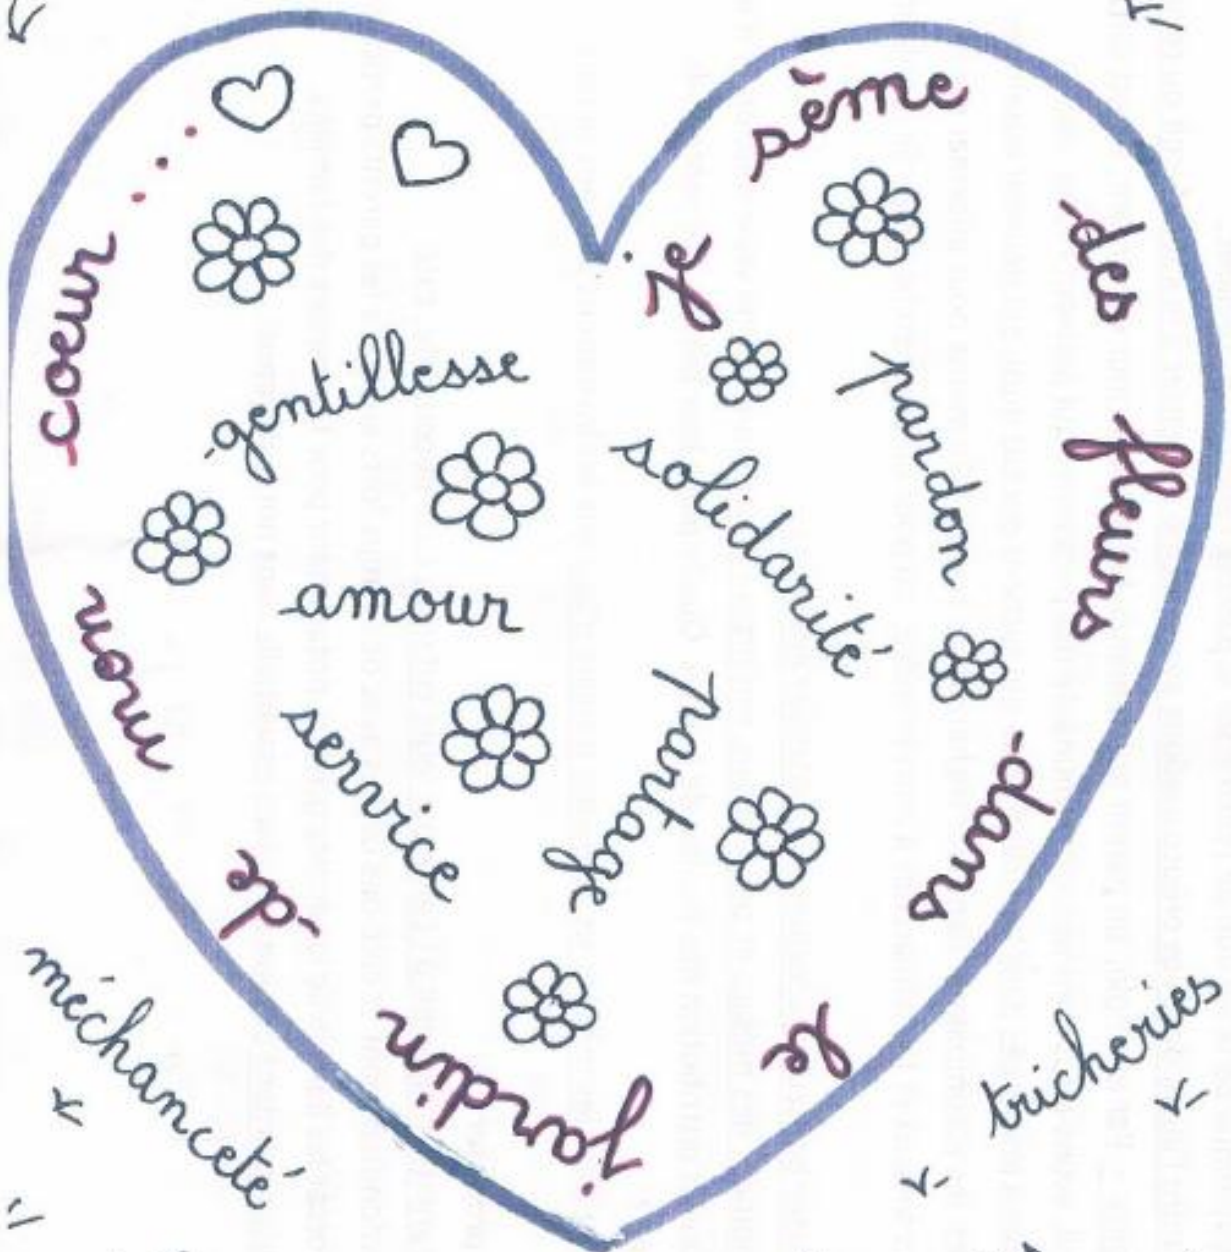 Je sème des fleurs dans le jardin de mon coeur...
gentillesse
pardon
solidarité
amour
partage
service
méchanceté
tricheries